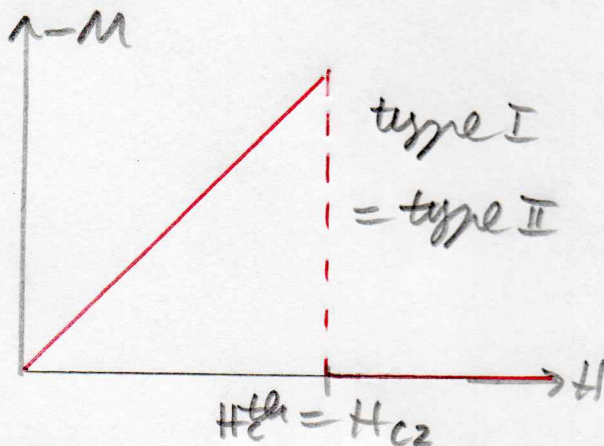 -M
type I
= type II
H
H_c^th = H_c2